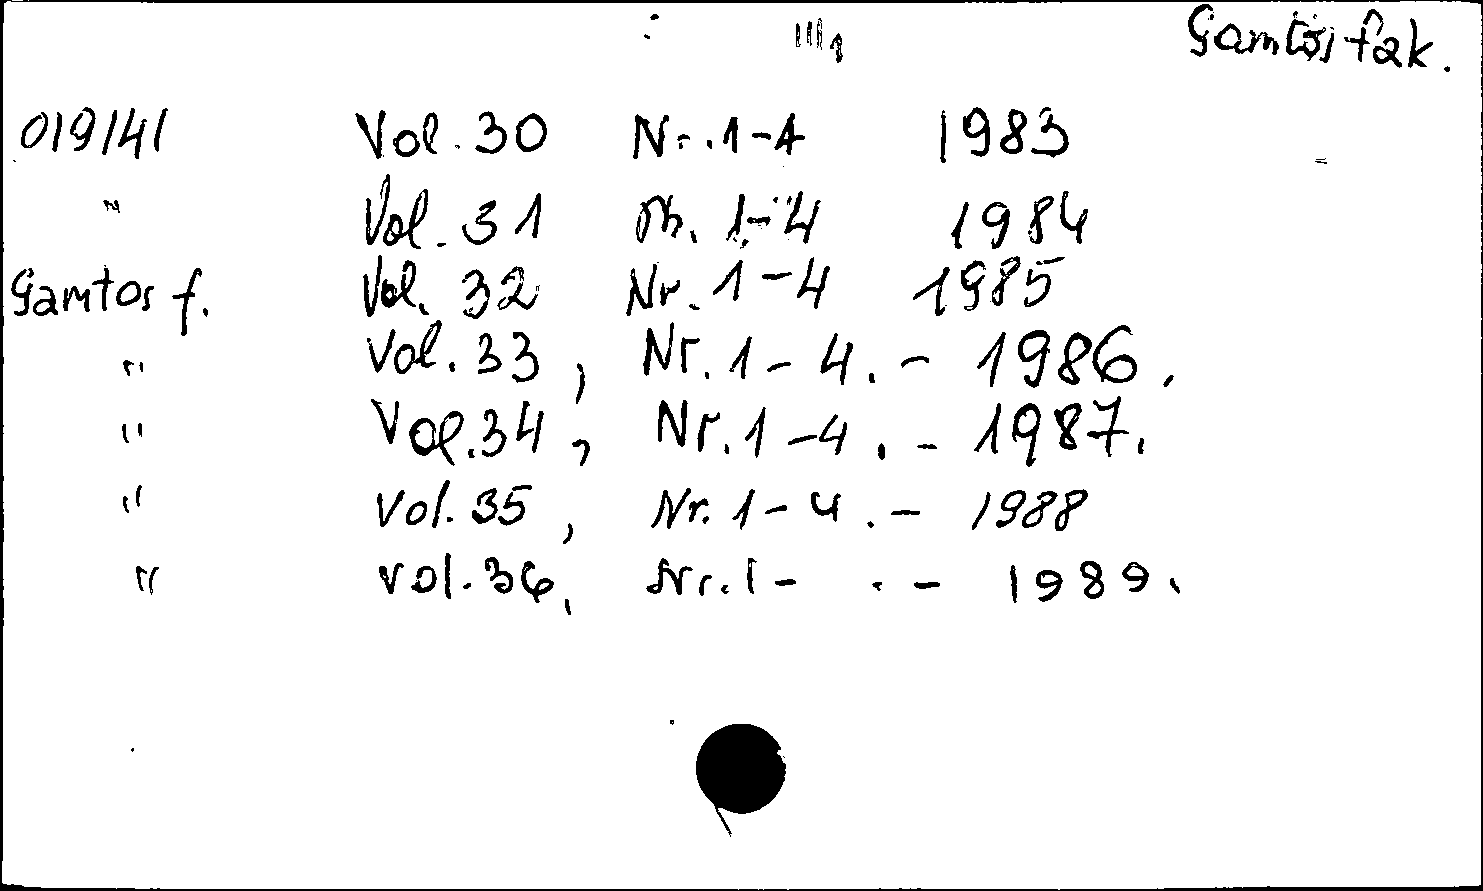 Gamtos fak.
019141 Vol. 30 Nr. 1-4 1983
" Vol. 31 Nr. 1-4 1984
Gamtos f. Vol. 32 Nr. 1-4 1985
" Vol. 33, Nr. 1-4. - 1986.
" Vol. 34, Nr. 1-4. - 1987.
" Vol. 35, Nr. 1-4. - 1988
" Vol. 36, Nr. 1- . - 1989.